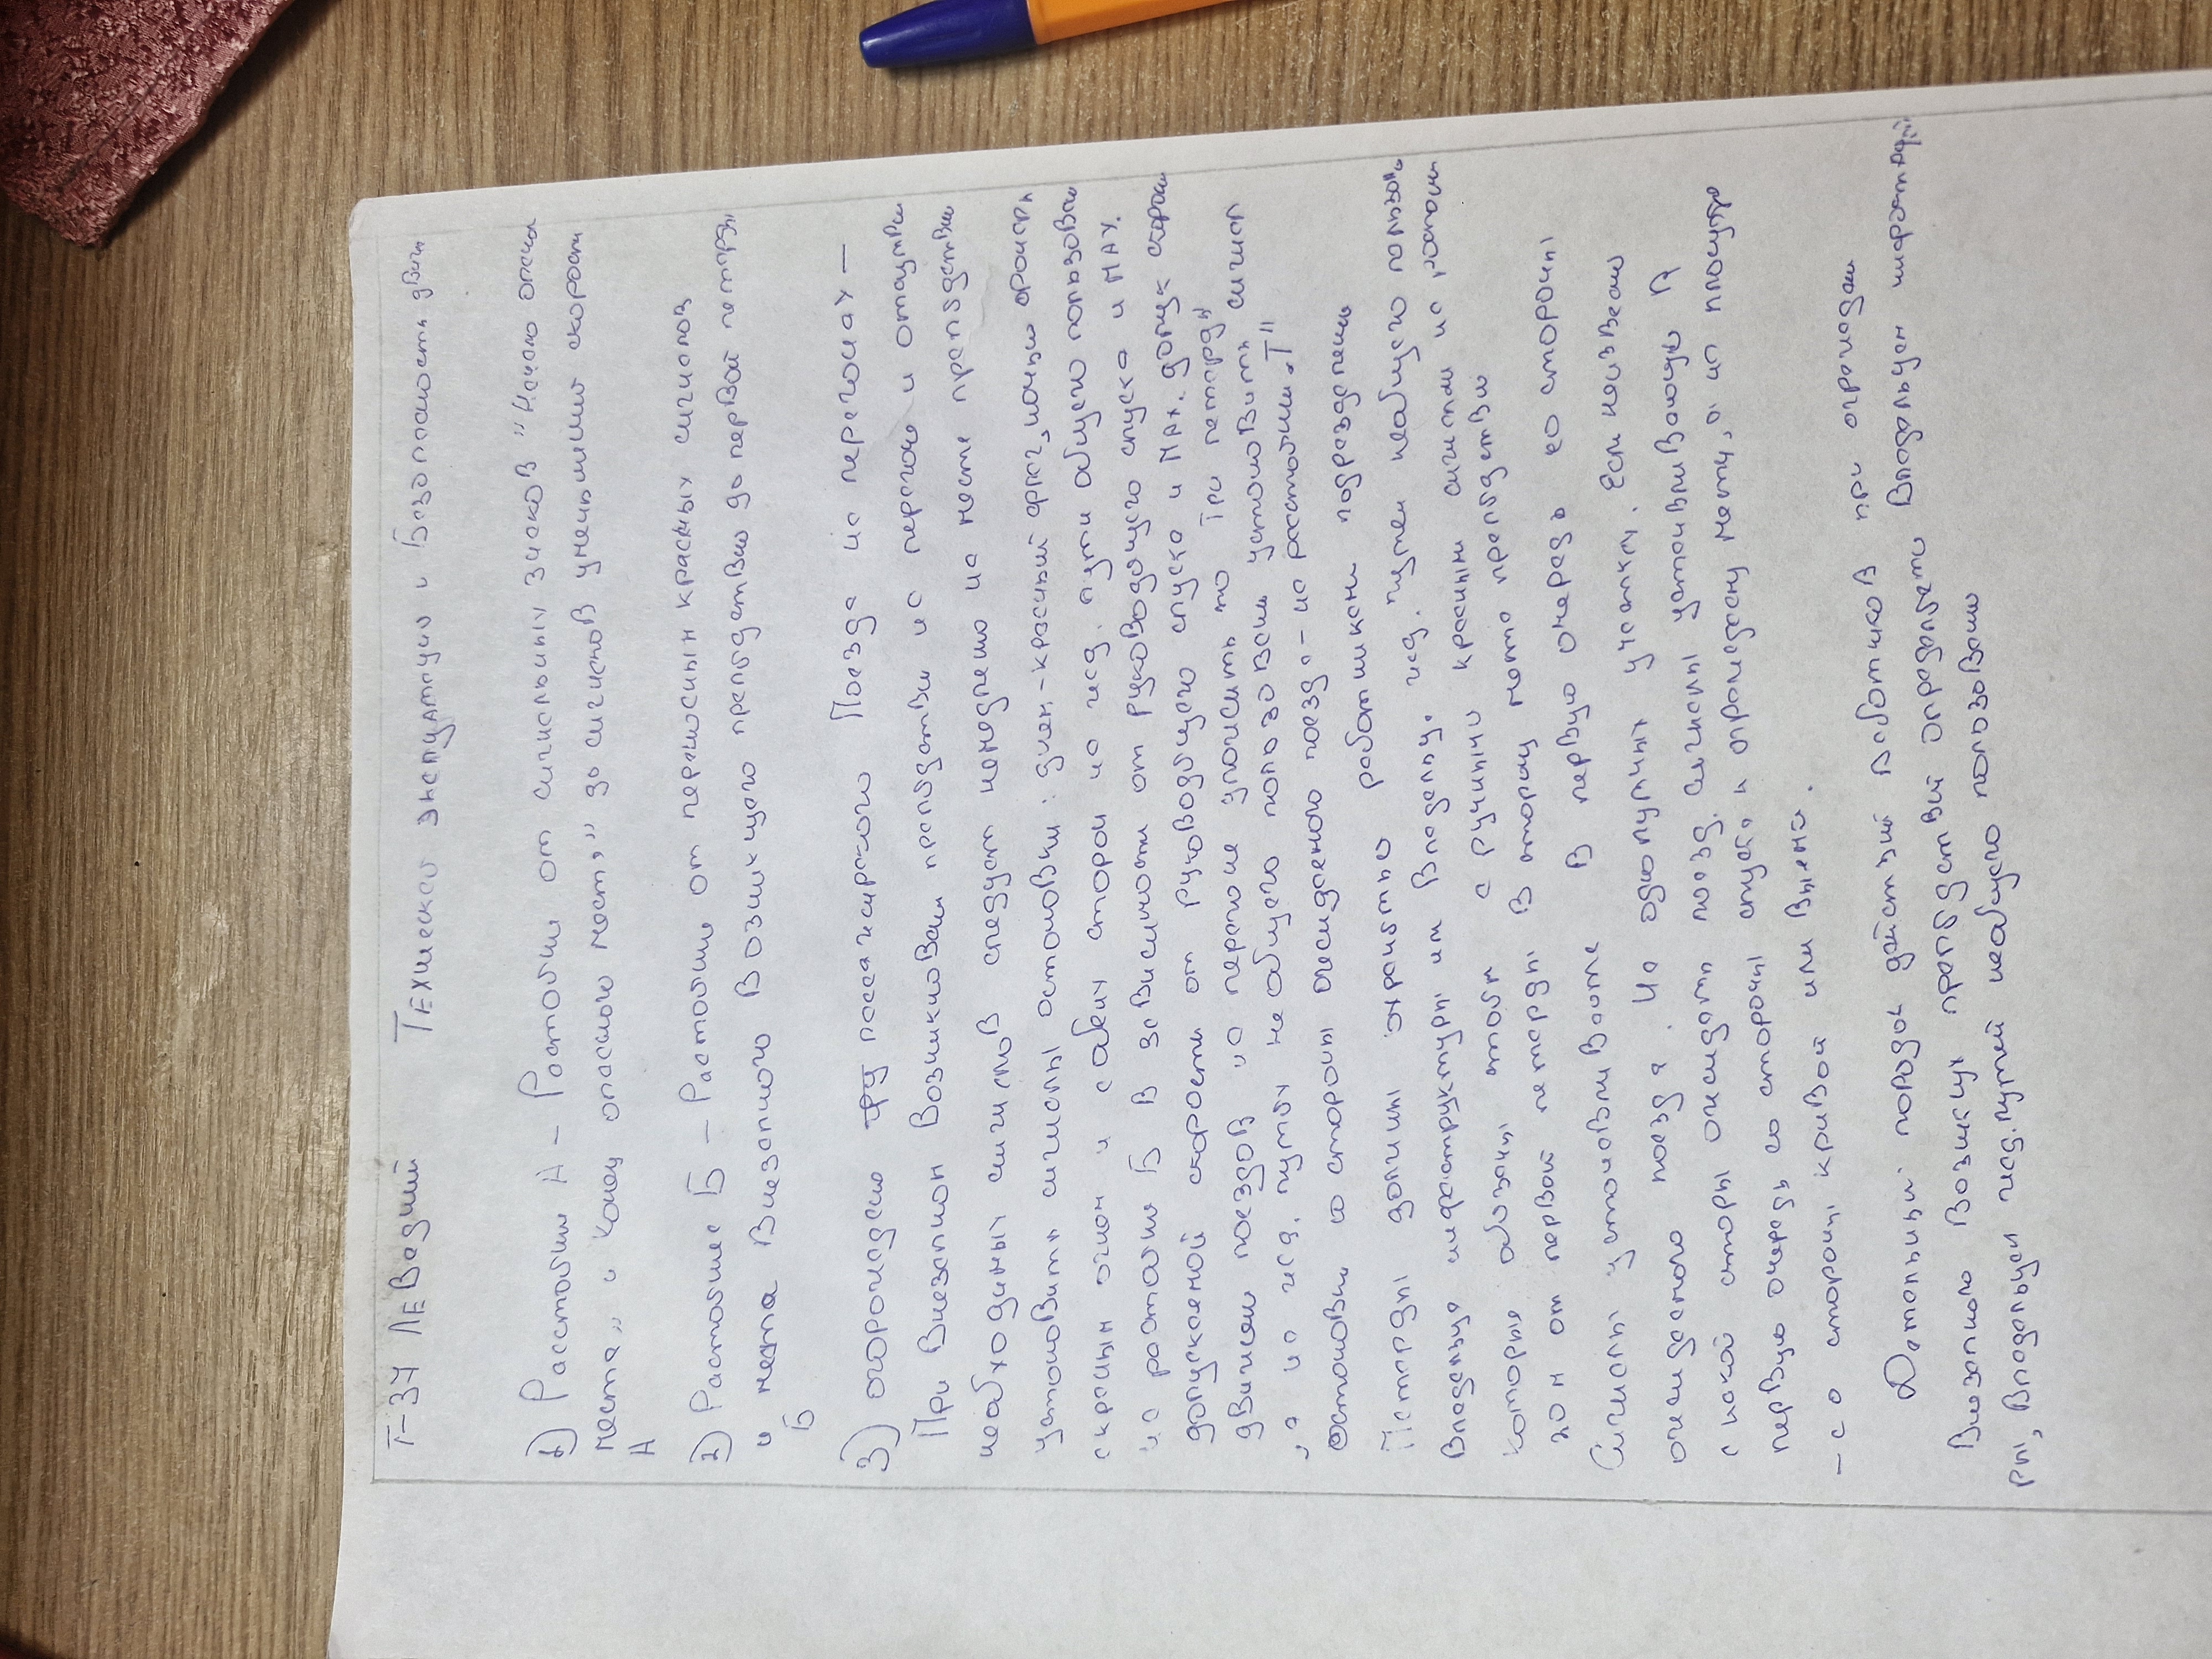 Т-34 Левадний Техническо эксплуатация и Безопасность движ
1) Расстояни А – Растояни от сигнальных знаков "Начало опасн
места" и Конец опасного места" до сигналов уменьшини скорост
А
2) Растояние Б – Растояни от переносных красных сигналов
и места Внезапного Возникщего препядствию до первой петарды
Б
3) огорождению пассажирского Поезда на перегонах –
При Внезапном Возникновени препядстви на перегоне и отсутстви
необходимых сигналов следует немедлено на месте препядствию
установить сигналы остановки: днем – красный ночью
с красным огнем и с обеих сторон на жед. пути общего пользован
на растояние Б В зависимости от руководящего спуска и МАХ.
допускаемой скорости от руководящего спуска и МАх. допуск скорост
движени поездов на перегоне уложить по Три петарды
, а на жед. путях не общего пользовани установить сигнал
остановки со стороны ожидаемого поезда – на растояни "Т"
Петарды должны охранятьс работниками подразделени
Владельца инфраструктуры или Владельц. жед. путей необщего пользов
которые обязаны стоять с ручными красными сигналами на растояни
20 м от первой петарды В сторону места препядстви
Сигналы устанавливаютс В первую очередь со стороны
ожидаемого поезда. На однопутных участках. Если неизвесно
с какой стороны ожидать поезд. Сигналы устанавливают В
первую очередь со стороны спуска к огрождаему месту, а на площадке
– со стороны кривой или Выемки.
Детальный порядок действий Работников при огрождени
Внезапного Возникщих препядствий определяетс Владельцем инфраструкту
ры, Владельцем жед. путей необщего пользовани